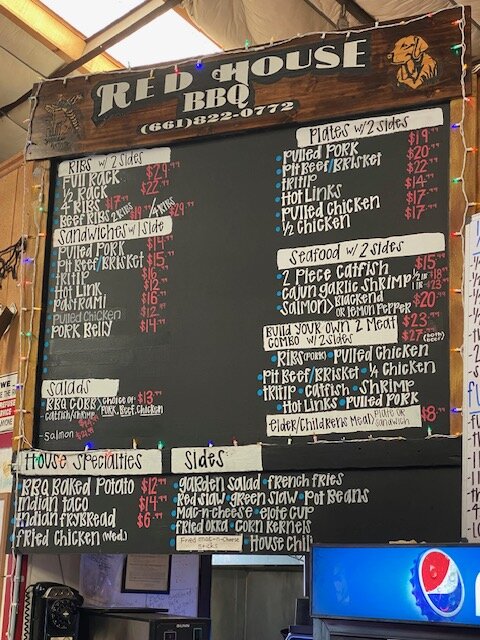 RED HOUSE
BBQ
(661)822-0772
RIBS W/ 2 SIDES
FULL RACK $29.99
1/2 RACK $22.99
4 RIBS $17.99
BEEF RIBS 2 RIBS $19.99 4 RIBS $29.99
SANDWICHES W/ 1 SIDE
PULLED PORK $14.99
PIT BEEF/BRISKET $15.99
TRITIP $16.99
HOT LINK $12.99
PASTRAMI $16.99
PULLED CHICKEN $12.99
PORK BELLY $14.99
SALADS
BBQ COBB > CHOICE OF PORK, BEEF, CHICKEN $13.99
CATFISH/SHRIMP
SALMON
PLATES W/ 2 SIDES
PULLED PORK $19.99
PIT BEEF/BRISKET $20.99
TRITIP $22.99
HOT LINKS $14.99
PULLED CHICKEN $17.99
1/2 CHICKEN $17.99
SEAFOOD W/ 2 SIDES
2 PIECE CATFISH $15.99
CAJUN GARLIC SHRIMP 1/2 LB $18.99 1 LB $23.99
SALMON > BLACKEND OR LEMON PEPPER $20.99
BUILD YOUR OWN 2 MEAT COMBO W/ 2 SIDES $23.99
$27.99 (BEEF RIB)
RIBS (PORK) • PULLED CHICKEN
PIT BEEF/BRISKET • 1/4 CHICKEN
TRITIP • CATFISH • SHRIMP
HOT LINKS • PULLED PORK
ELDER/CHILDRENS MEAL > PLATE OR SANDWICH $8.99
HOUSE SPECIALTIES
BBQ BAKED POTATO $12.99
INDIAN TACO $14.99
INDIAN FRYBREAD $6.99
FRIED CHICKEN (WED.)
SIDES
GARDEN SALAD • FRENCH FRIES
RED SLAW • GREEN SLAW • POT BEANS
MAC-N-CHEESE • ELOTE CUP
FRIED OKRA • CORN KERNELS
FRIED MAC-N-CHEESE STICKS • HOUSE CHILI
WE
REFUSE
SERVICE
ANYONE
BUNN